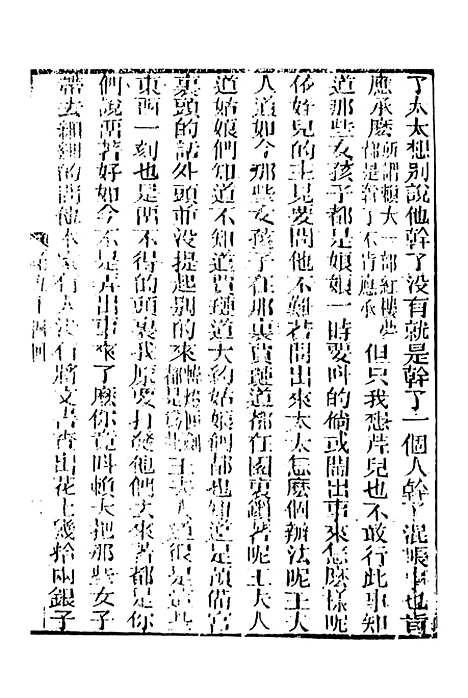 了太太想別說他幹了沒有就是幹了一個人幹了混賬事也肯
應承麽所謂賴大一部紅樓夢都是幹了不肯應承但只我想芹兒也不敢行此事知
道那些女孩子都是娘娘一時要叫的倘或鬧出事來怎麽樣呢
依好兒的主見要問他不難若問出來太太怎麽個辦法呢王夫
人道如今那些女孩子在那裏賈璉道都在園裏鎖著呢王夫人
道姑娘們知道不知道賈璉道大約姑娘們都也知道是預備宮
裏頭的話外頭並沒提起別的來王夫人道很是這些
東西一刻也是留不得的頭裏我原要打發他們去來著都是你
們說留著好如今不是弄出事來了麽你竟叫賴大把那些女子
帶去細細的問他本家有人沒有將文書查出花上幾拾兩銀子
十四回